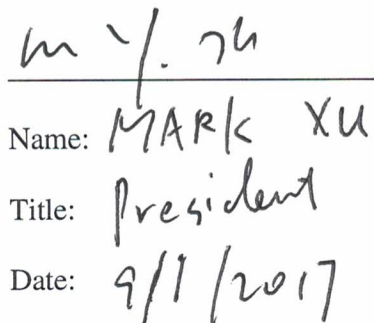 Name: MARK XU
Title: President
Date: 9/1/2017